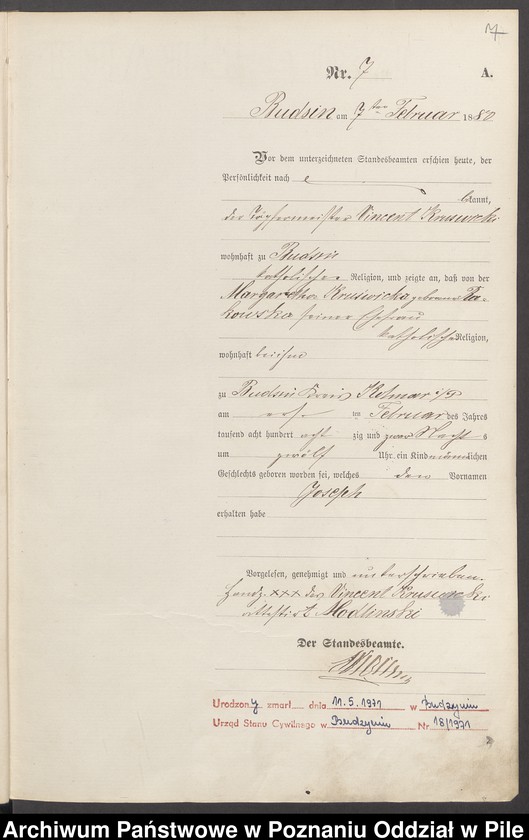 7
Nr. 7 A.
Budsin am 7ten Februar 1880
Vor dem unterzeichneten Standesbeamten erschien heute, der
Persönlichkeit nach
bekannt,
der Töpfermeister Vincent Krusiwcki
wohnhaft zu Budsin
katholischer Religion, und zeigte an, daß von der
Margaretha Krusiwicka geborene
seiner Ehefrau
katholischer Religion,
wohnhaft bei ihm
zu Budsin Kreis Kolmar i/P
am im Februar des Jahres
tausend acht hundert acht zig und zwar Nacht s
um zwölf Uhr ein Kind männlichen
Geschlechts geboren worden sei, welches den Vornamen
Joseph
erhalten habe
Vorgelesen, genehmigt und unterschrieben.
Handz. +++ des Vincent Krusiwcki
attestirt Modlinski
Der Standesbeamte.
Urodzony zmarł dnia 11.5.1971 w Budzyniu
Urząd Stanu Cywilnego w Budzyniu Nr 18/1971
Archiwum Państwowe w Poznaniu Oddział w Pile